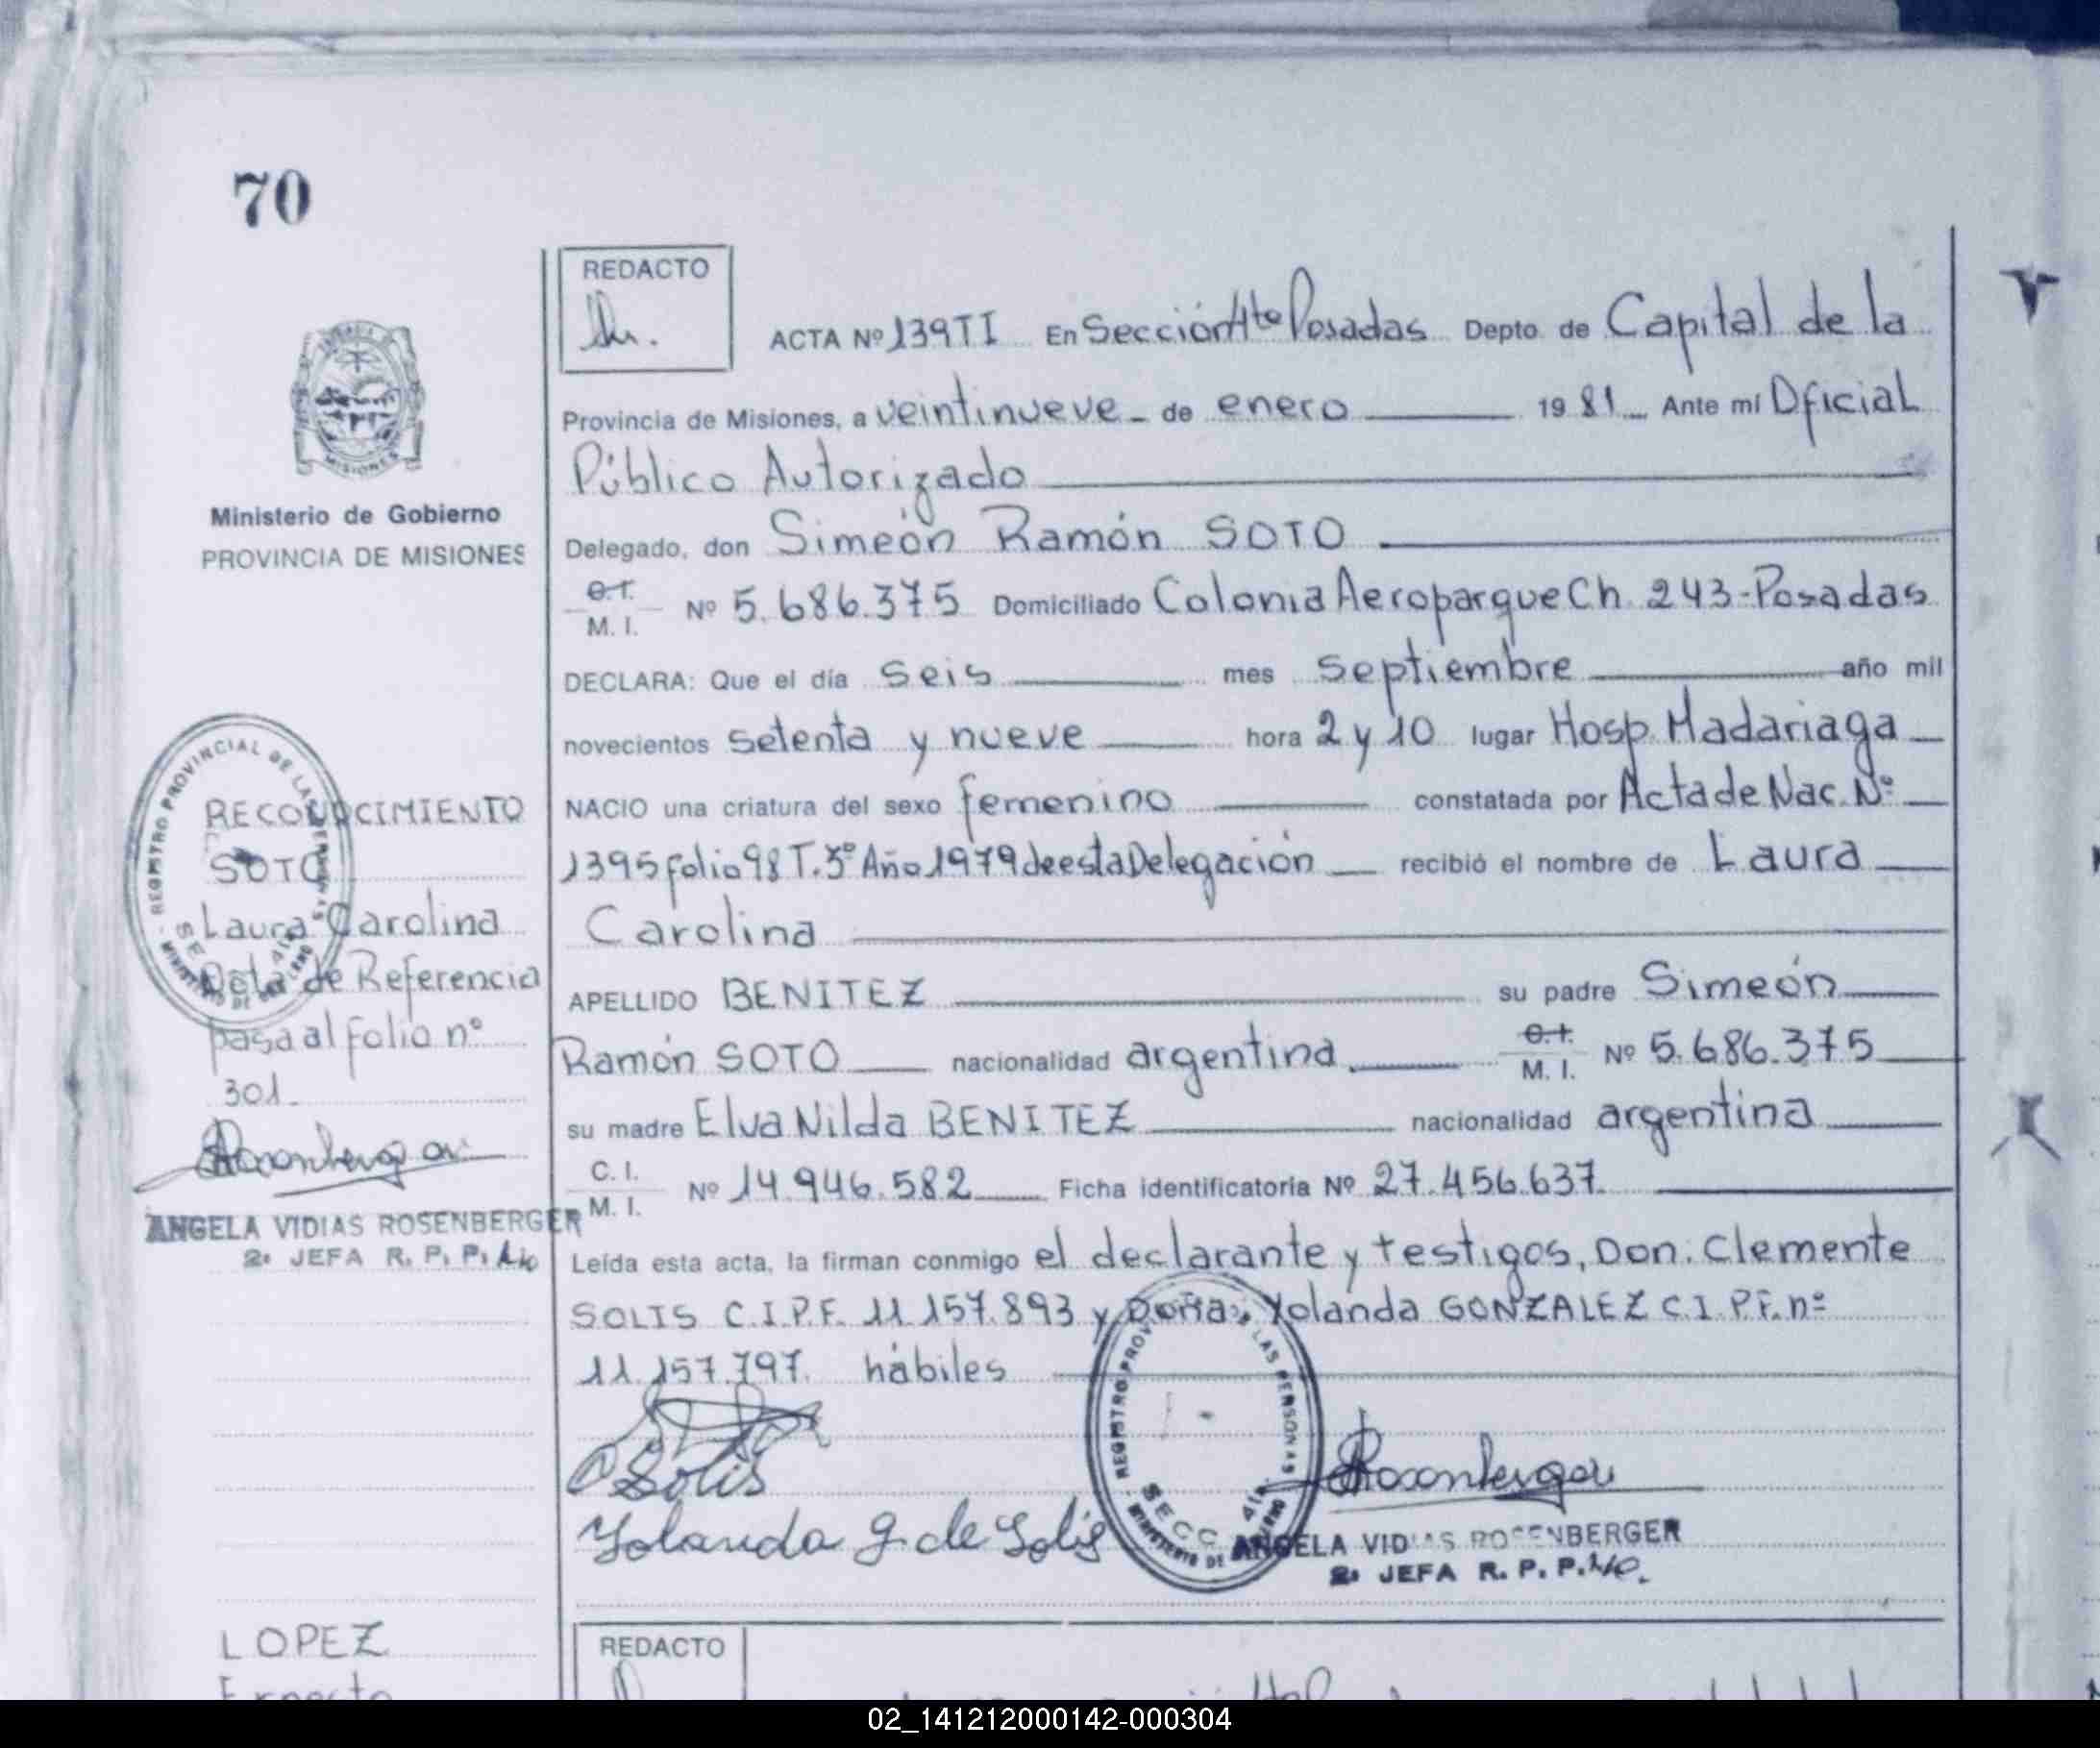 70
REDACTO
ACTA Nº 139 TI En Sección 4ta Posadas Depto. de Capital de la
Provincia de Misiones, a veintinueve - de enero 1981 Ante mí Oficial
Público Autorizado
Delegado, don Simeón Ramón SOTO
C.I.
M. I. Nº 5.686.375 Domiciliado Colonia Aeroparque Ch. 243-Posadas
DECLARA: Que el día seis mes septiembre año mil
novecientos setenta y nueve hora 2 y 10 lugar Hosp. Madariaga
NACIO una criatura del sexo femenino constatada por Acta de Nac. Nº
1395 folio 98 T. 3º Año 1979 de esta Delegación recibió el nombre de Laura
Carolina
APELLIDO BENITEZ su padre Simeón
Ramón SOTO nacionalidad argentina C.I.
M. I. Nº 5.686.375
su madre Elva Nilda BENITEZ nacionalidad argentina
C. I.
M. I. Nº 14.946.582 Ficha identificatoria Nº 27.456.637.
Leída esta acta, la firman conmigo el declarante y testigos, Don: Clemente
SOLIS C.I.P.F. 11.157.893 y Doña: Yolanda GONZALEZ C.I.P.F. nº
11.157.797. hábiles
Solis
Yolanda G. de Solis
REGISTRO PROVINCIAL DE LAS PERSONAS
SECC. 4ta.
MINISTERIO DE GOBIERNO
Rosenberger
ANGELA VIDIAS ROSENBERGER
2ª JEFA R. P. P.
MISIONES
Ministerio de Gobierno
PROVINCIA DE MISIONES
REGISTRO PROVINCIAL DE LAS PERSONAS
SECC. 4ta.
MINISTERIO DE GOBIERNO
RECONOCIMIENTO
SOTO
Laura Carolina
Nota de Referencia
pasa al folio nº
301.
Rosenberger
ANGELA VIDIAS ROSENBERGER
2ª JEFA R. P. P.
LOPEZ
Ernesto
REDACTO
02_141212000142-000304